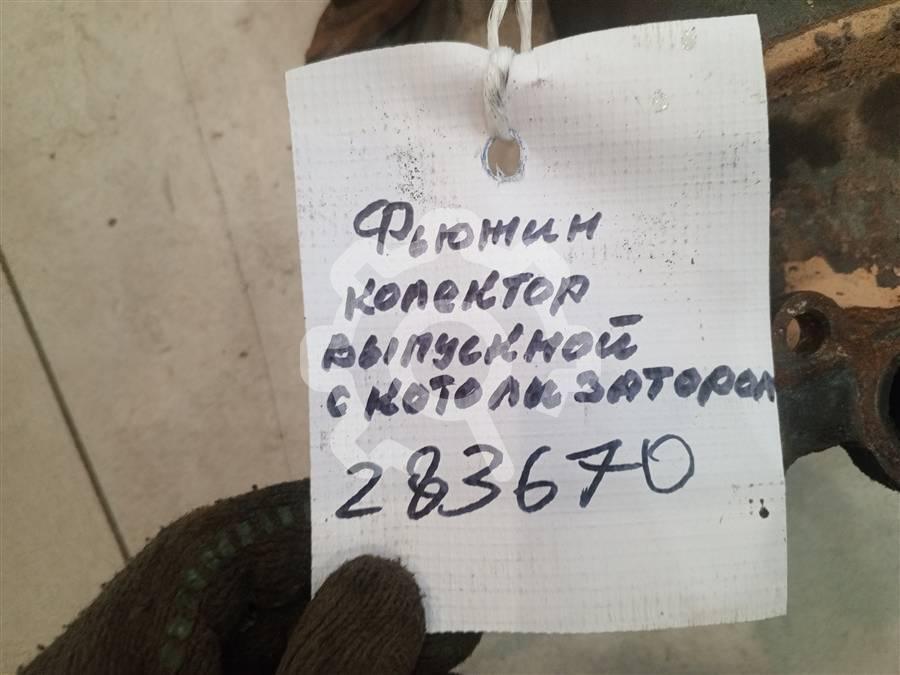 Фьюжин
колектор
выпускной
с котолизатором
283670